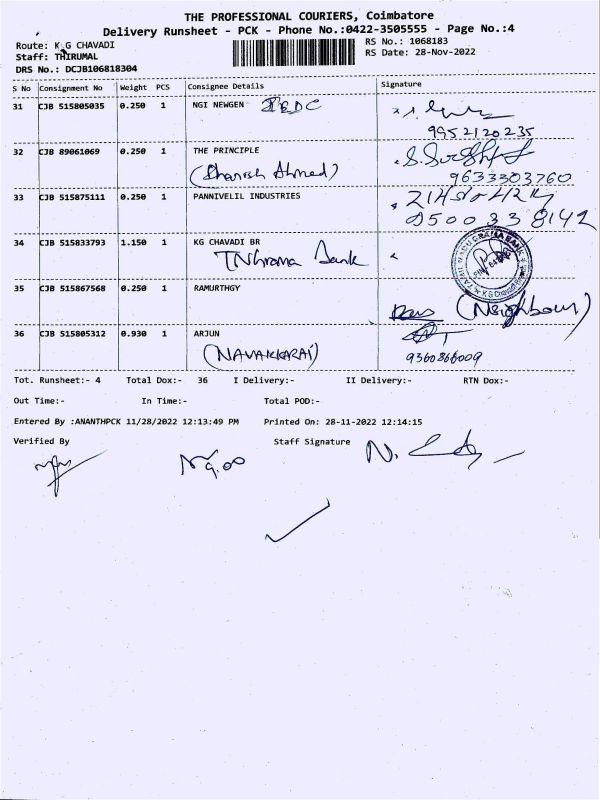 THE PROFESSIONAL COURIERS, Coimbatore
Delivery Runsheet - PCK - Phone No.:0422-3505555 - Page No.:4
Route: K G CHAVADI
RS No.: 1068183
Staff: THIRUMAL
RS Date: 28-Nov-2022
DRS No.: DCJB106818304
S No Consignment No Weight PCS Consignee Details Signature
31 CJB 515805035 0.250 1 NGI NEWGEN
9952120235
32 CJB 89061069 0.250 1 THE PRINCIPLE
(Dhanish Ahmed) 9633303760
33 CJB 515875111 0.250 1 PANNIVELIL INDUSTRIES
9500338142
34 CJB 515833793 1.150 1 KG CHAVADI BR
TNGrama Bank
TAMIL NADU GRAMA BANK
K G Chavadi
35 CJB 515867568 0.250 1 RAMURTHGY
(Neighbour)
36 CJB 515805312 0.930 1 ARJUN
(NAVAKKARAI) 9360866009
Tot. Runsheet:- 4 Total Dox:- 36 I Delivery:- II Delivery:- RTN Dox:-
Out Time:- In Time:- Total POD:-
Entered By :ANANTHPCK 11/28/2022 12:13:49 PM Printed On: 28-11-2022 12:14:15
Verified By Staff Signature